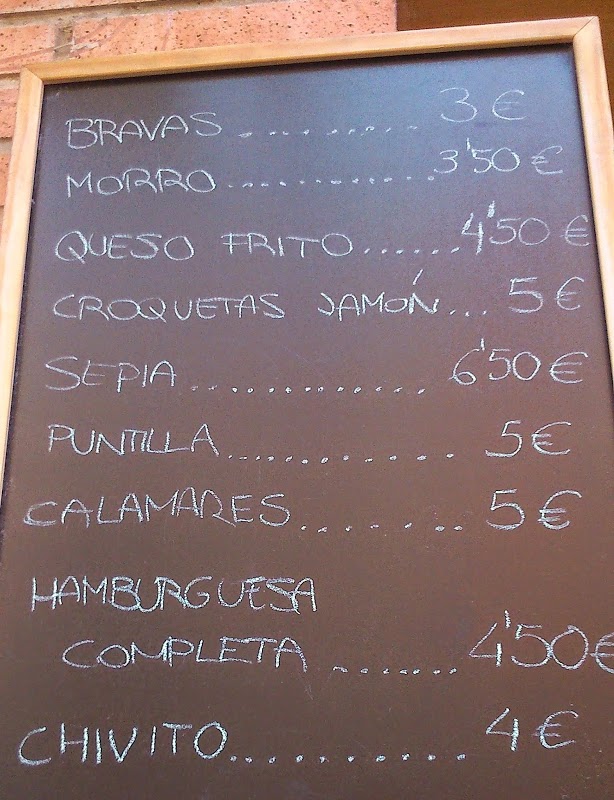 BRAVAS ............ 3 €
MORRO ............... 3'50 €
QUESO FRITO ...... 4'50 €
CROQUETAS JAMÓN ... 5 €
SEPIA ............. 6'50 €
PUNTILLA ............ 5 €
CALAMARES ........ 5 €
HAMBURGUESA
COMPLETA ........ 4'50 €
CHIVITO ............ 4 €